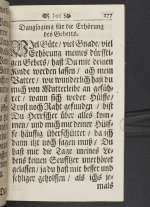 177
Danksagung für die Erhörung
des Gebeths.
Viel Güte / viel Gnade / viel
Erhörung meines dürfftigen
Gebeths / hast Du mit deinem
Kinde werden lassen / ach mein
Vatter / wie wunderlich hast du
mich von Mutterleibe an geführet /
wann sich weder Hülffe /
Trost noch Raht gefunden / bist
Du Herrscher über alles kommen /
und mich mit deiner Hülffe
häuffig überschüttet / da ich
dann ist noch sagen muß / Du
hast mir die Tage meines Lebens
keinen Seufftzer unerhöret
gelassen / ja du hast mir besser und
seeliger geholffen / als ich jemals